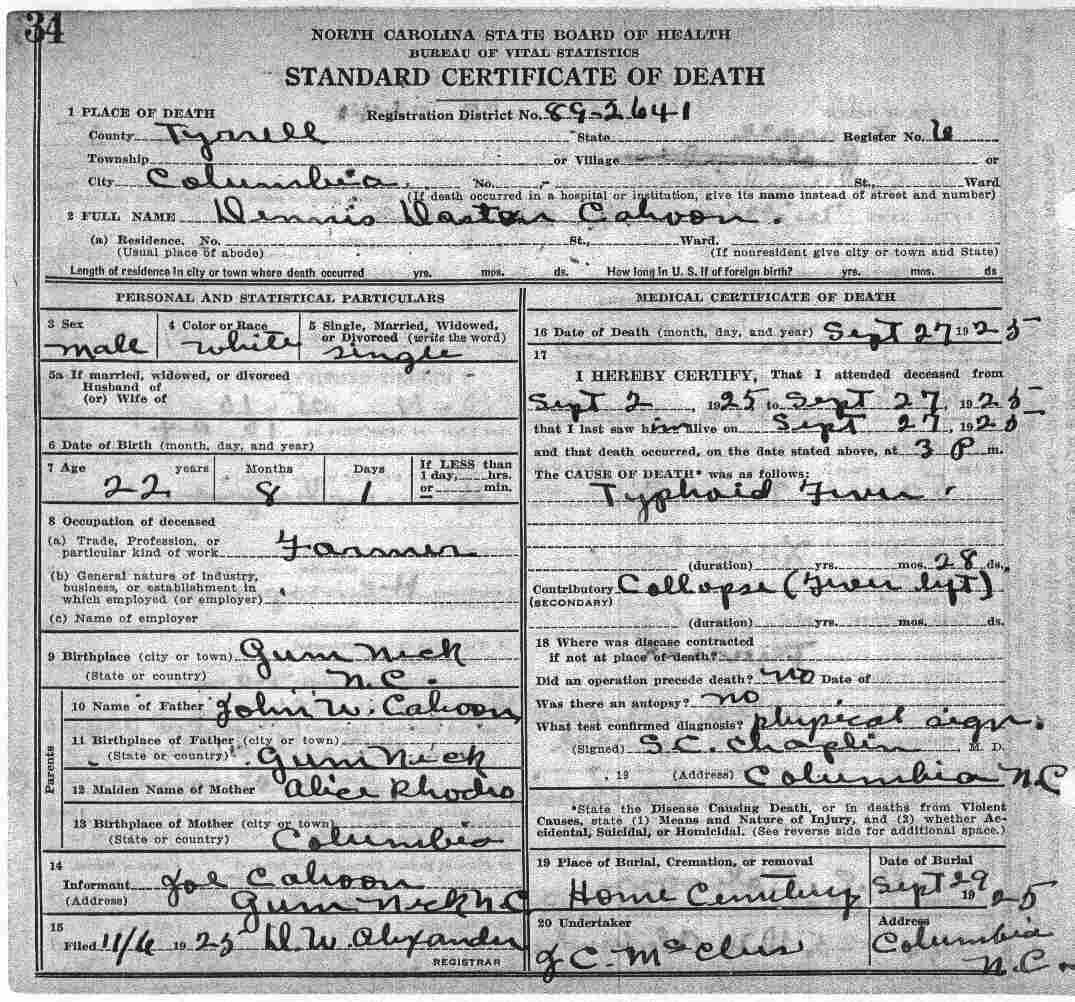 34
NORTH CAROLINA STATE BOARD OF HEALTH
BUREAU OF VITAL STATISTICS
STANDARD CERTIFICATE OF DEATH
1 PLACE OF DEATH Registration District No. 89-2641
County Tyrrell State Register No. 16
Township or Village or
City Columbia, No. - St., Ward
(If death occurred in a hospital or institution, give its name instead of street and number)
2 FULL NAME Dennis Daston Cahoon.
(a) Residence. No. St., Ward.
(Usual place of abode) (If nonresident give city or town and State)
Length of residence in city or town where death occurred yrs. mos. ds. How long in U. S. if of foreign birth? yrs. mos. ds
PERSONAL AND STATISTICAL PARTICULARS
3 Sex 4 Color or Race 5 Single, Married, Widowed,
or Divorced (write the word)
male white single
5a If married, widowed, or divorced
Husband of
(or) Wife of
6 Date of Birth (month, day, and year)
7 Age years Months Days If LESS than
1 day, hrs.
or min.
22 8 1
8 Occupation of deceased
(a) Trade, Profession, or
particular kind of work Farmer
(b) General nature of Industry,
business, or establishment in
which employed (or employer)
(c) Name of employer
9 Birthplace (city or town) Gum Neck
(State or country) N.C.
Parents
10 Name of Father John W. Cahoon
11 Birthplace of Father (city or town)
(State or country) Gum Neck
12 Maiden Name of Mother Alice Rhodes
13 Birthplace of Mother (city or town)
(State or country) Columbia
14
Informant Joe Cahoon
(Address) Gum Neck N C
15
Filed 11/6 1925 D. W. Alexander
REGISTRAR
MEDICAL CERTIFICATE OF DEATH
16 Date of Death (month, day, and year) Sept 27 1925
17
I HEREBY CERTIFY, That I attended deceased from
Sept 2, 1925 to Sept 27, 1925
that I last saw him alive on Sept 27, 1925
and that death occurred, on the date stated above, at 3 P m.
The CAUSE OF DEATH* was as follows:
Typhoid Fever
(duration) yrs. mos. 28 ds.
Contributory Collapse (Fever
(SECONDARY)
(duration) yrs. mos. ds.
18 Where was disease contracted
if not at place of death?
Did an operation precede death? no Date of
Was there an autopsy? no
What test confirmed diagnosis? physical sign.
(Signed) S.C. Chaplin, M. D.
, 19 (Address) Columbia N.C
*State the Disease Causing Death, or in deaths from Violent
Causes, state (1) Means and Nature of Injury, and (2) whether Ac-
cidental, Suicidal, or Homicidal. (See reverse side for additional space.)
19 Place of Burial, Cremation, or removal Date of Burial
Home Cemetery Sept 29 1925
20 Undertaker Address
J C. McClees Columbia
N.C.